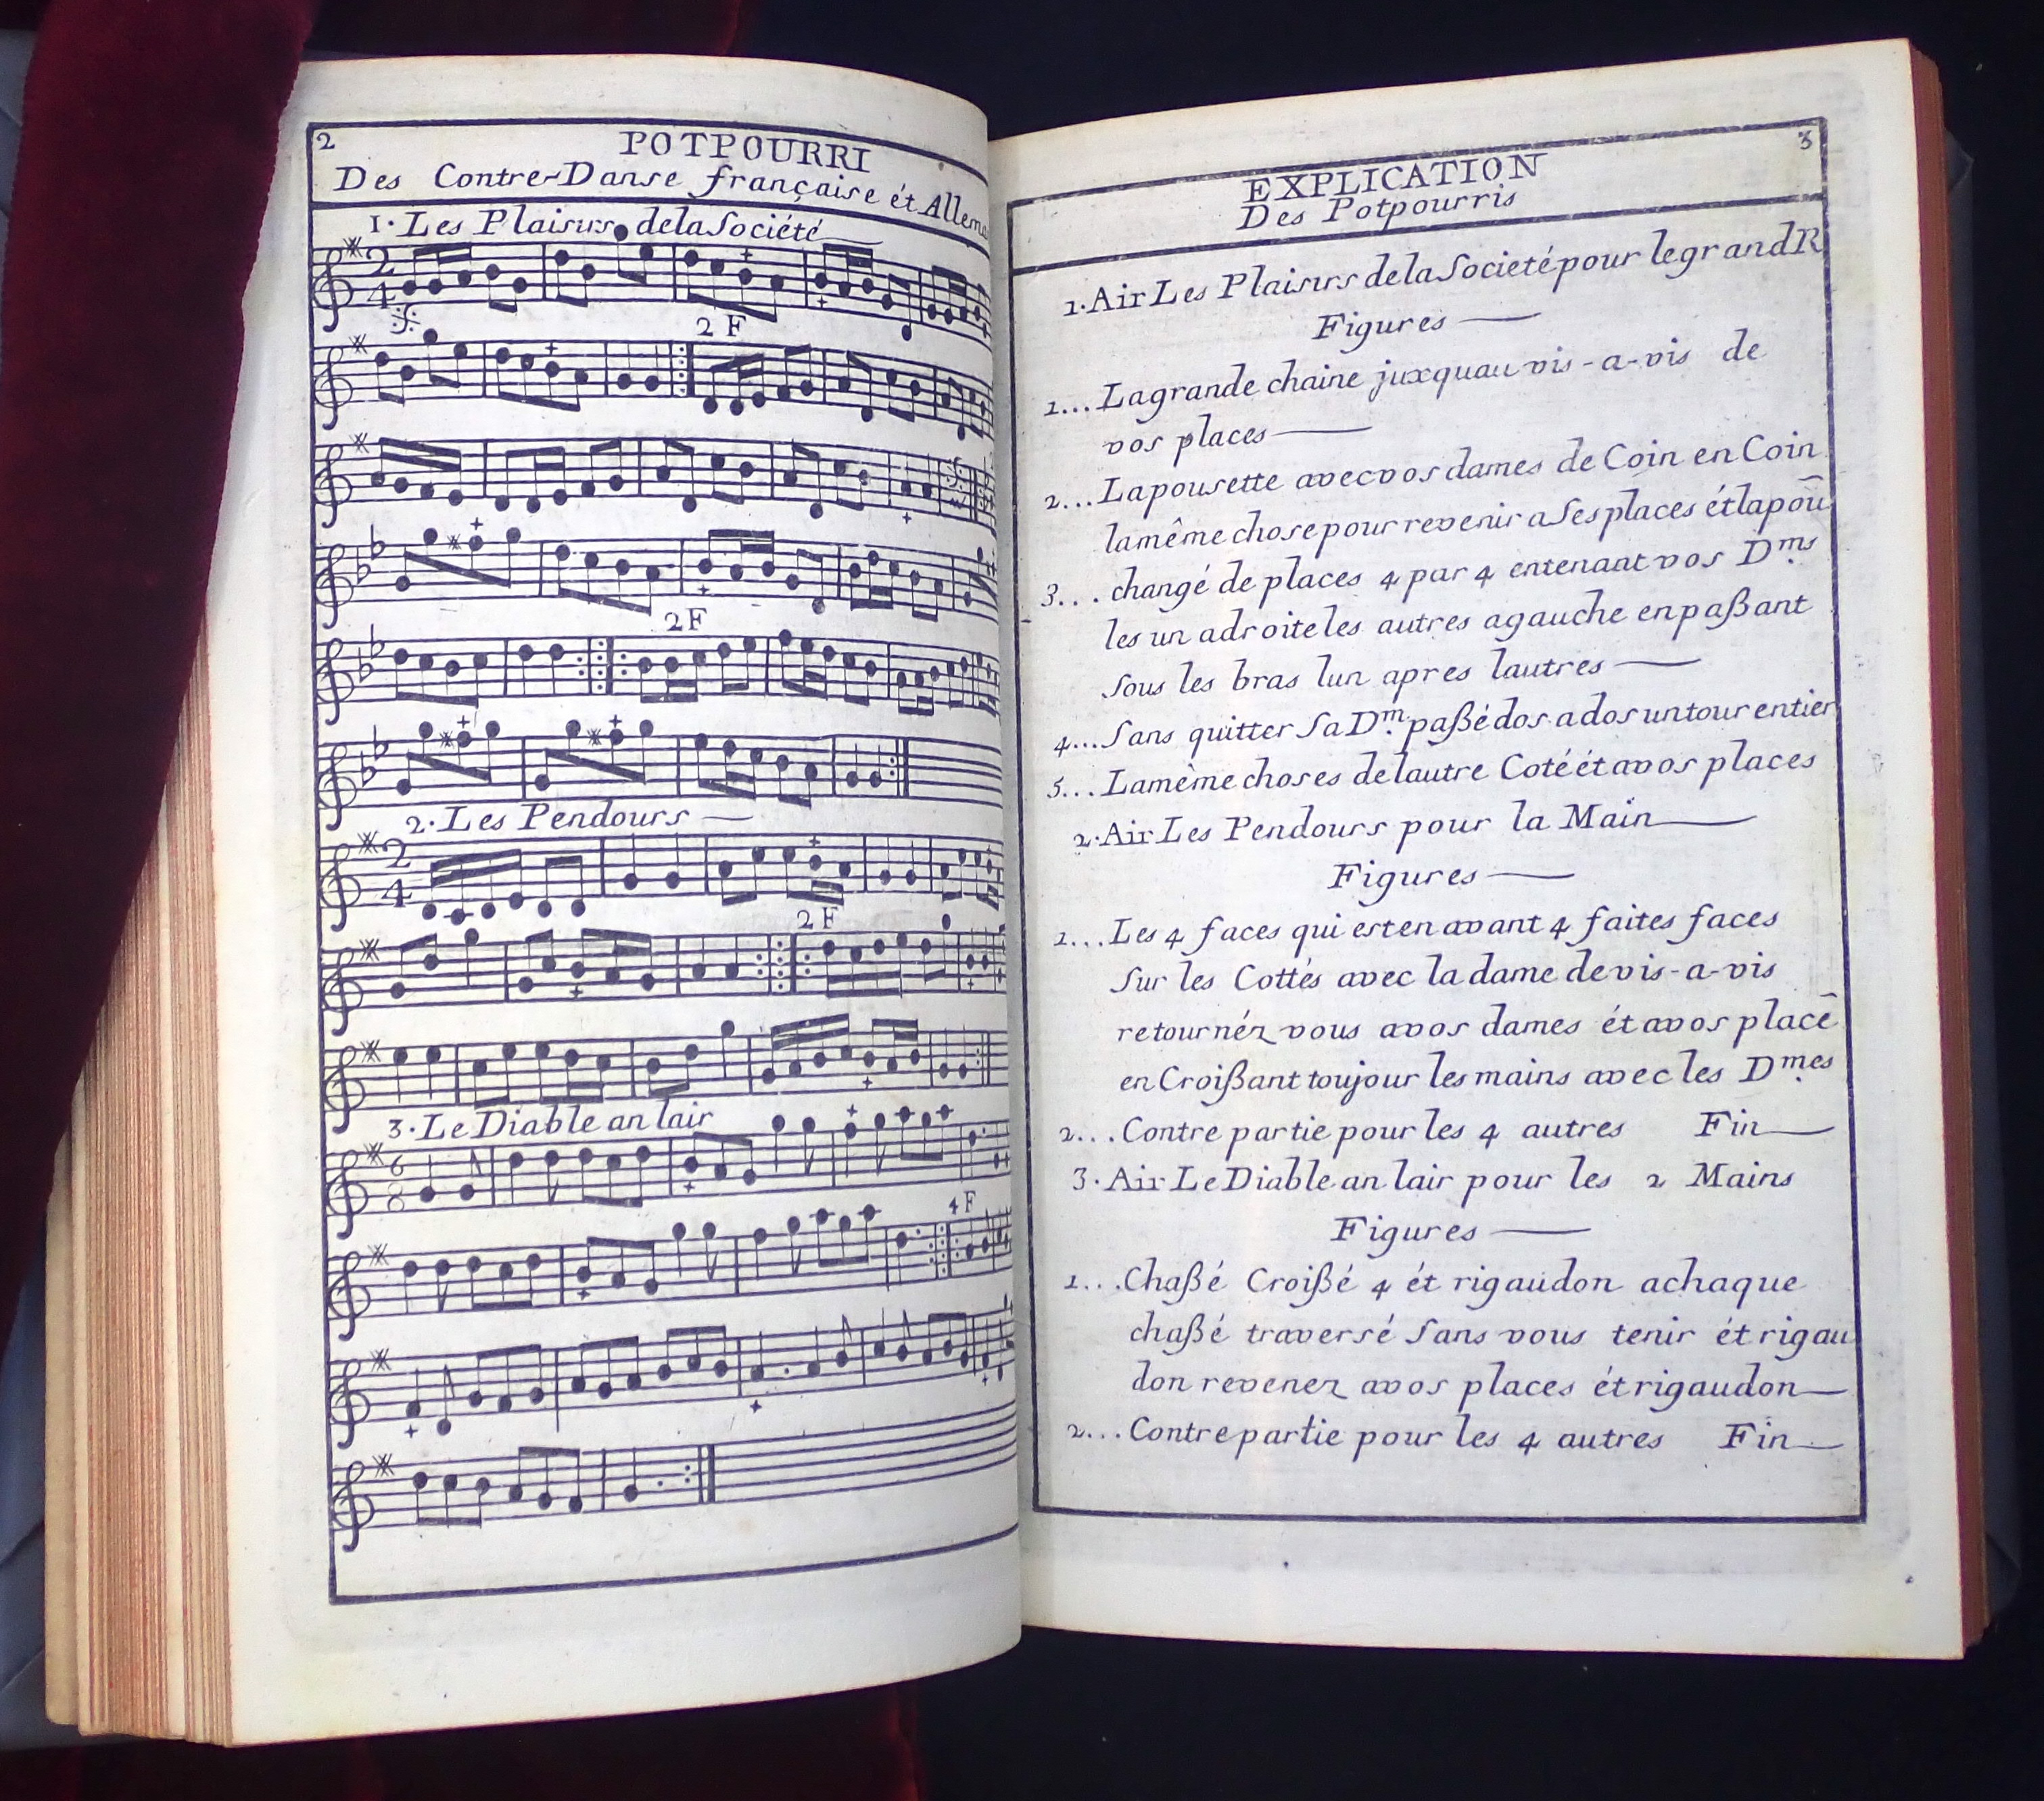 2
POTPOURRI
Des Contre-Danse française ét Alleme
1. Les Plaisirs dela Société
2 4
2 F
2 F
2. Les Pendours
2 4
2 F
3. Le Diable an lair
6 8
4 F
3
EXPLICATION
Des Potpourris
1. Air Les Plaisirs dela Societé pour le grand R
Figures
1... La grande chaine juxquau vis-a-vis de
vos places
2... La pousette avec vos dames de Coin en Coin
la même chose pour revenir a Ses places ét la poũ
3... changé de places 4 par 4 en tenant vos D.ms
les un a droite les autres a gauche en paßant
Sous les bras lun apres lautres
4... Sans quitter Sa D.m paßé dos a dos un tour entier
5... La même choses de lautre Coté ét a vos places
2. Air Les Pendours pour la Main
Figures
1... Les 4 faces qui est en avant 4 faites faces
Sur les Cottés avec la dame de vis-a-vis
retournéz vous a vos dames ét a vos place
en Croißant toujour les mains avec les D.mes
2... Contre partie pour les 4 autres Fin
3. Air Le Diable an lair pour les 2 Mains
Figures
1... Chaßé Croißé 4 ét rigaudon a chaque
chaßé traversé Sans vous tenir ét rigau
don revenez a vos places ét rigaudon
2... Contre partie pour les 4 autres Fin